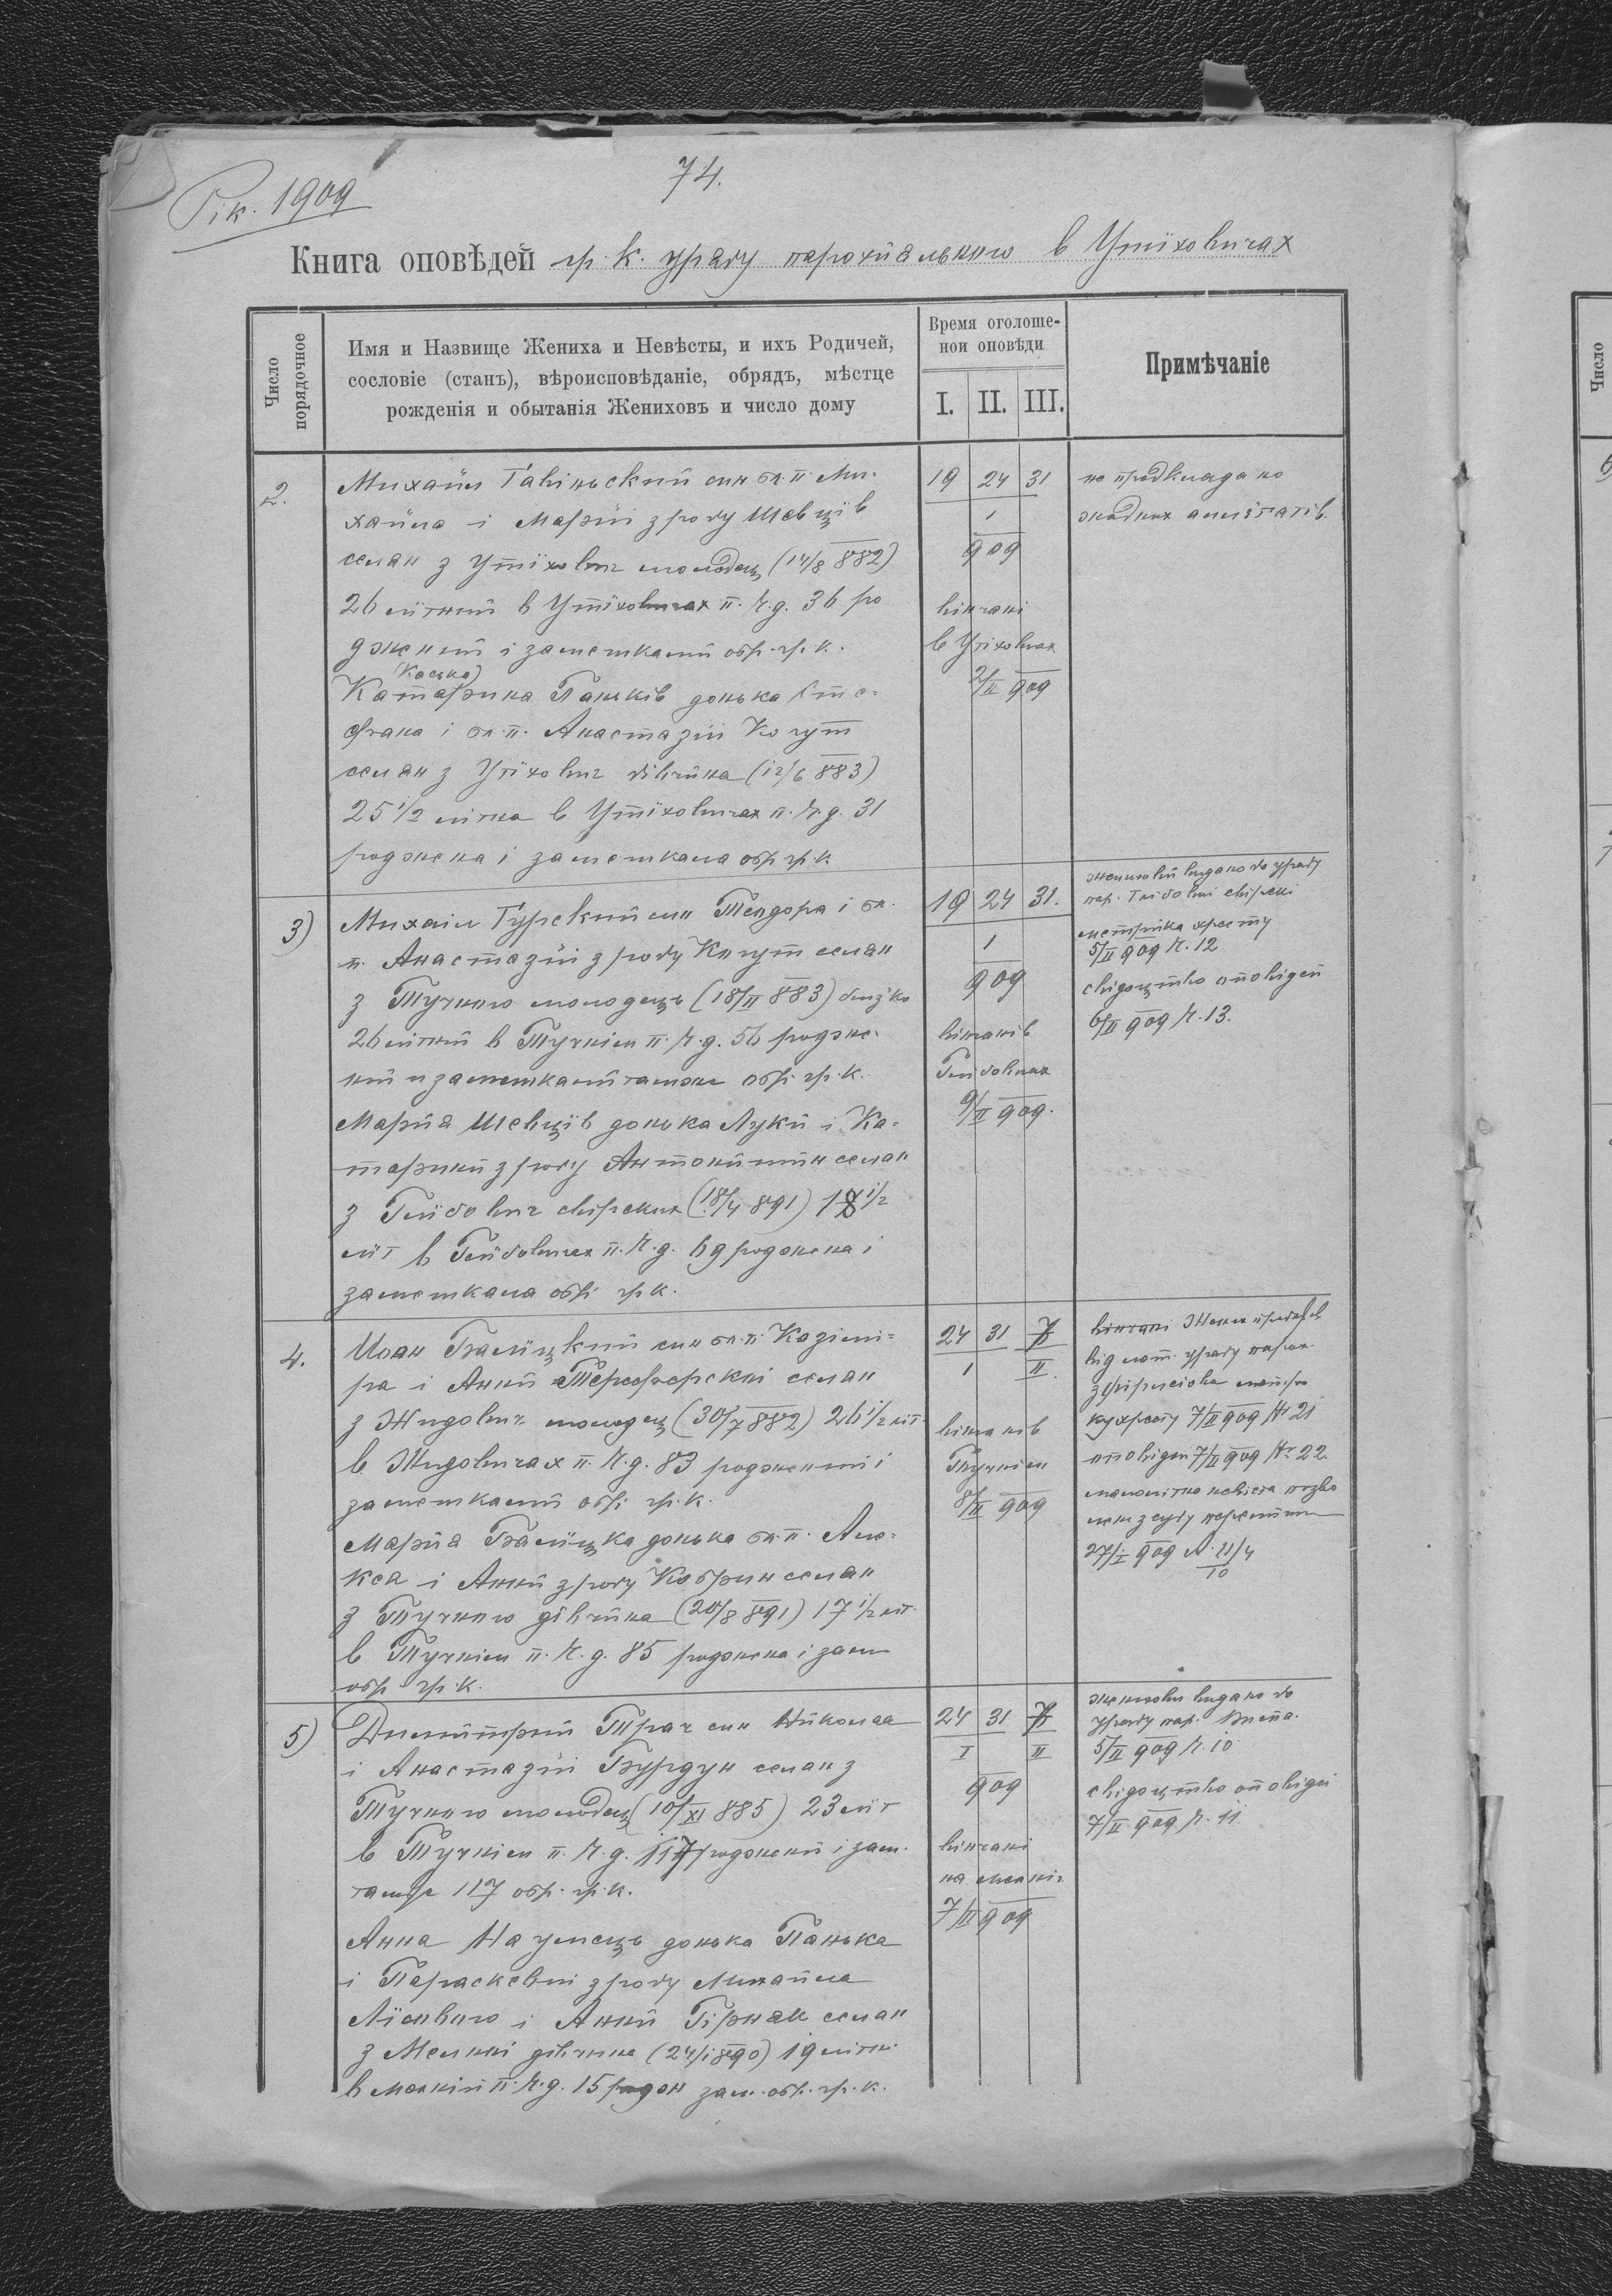 74.
Рік. 1909
Книга оповѣдей гр. к. уряду парохіяльного в Утїховичах
Число порядочное
Имя и Назвище Жениха и Невѣсты, и ихъ Родичей,
сословіе (станъ), вѣроисповѣданіе, обрядъ, мѣстце
рожденія и обытанія Жениховъ и число дому
Время оголоше-
нои оповѣди
I. II. III.
Примѣчаніе
2.
Михайло Гавіньский син бл. п. Ми-
хайла і Марії з роду Шевцїв
селян з Утїхович молодець (14/8 882)
26 літний в Утїховичах п. ч. д. 36 ро
джений і замешкалий обр. гр. к.
(Каська)
Катарина Паньків донька Сте-
фана і бл. п. Анастазії Когут
селян з Утїхович дївчина (12/6 883)
25 1/2 літна в Утїховичах п. ч. д. 31
роджена і замешкала обр. гр. к.
19 24 31
1
909
вінчані
в Утїховичах
2/II 909
не предкладано
жадних алєґатів.
3)
Михаіл Гурский син Теодора і бл.
п. Анастазії з роду Когут селян
з Тучного молодець (18/II 883) близько
26 літний в Тучнім п. ч. д. 56 родже-
ний и замешкалий також обр. гр. к.
Марія Шевцїв донька Луки і Ка-
терини з роду Антонїшин селян
з Глїбович свірских (18/4 891) 18 1/2
літ в Глїбовичах п. ч. д. 69 роджена і
замешкала обр. гр. к.
19 24 31.
1
909
вінчані в
Глїбовичах
9/II 909.
женихови видано до уряду
пар. Глїбовичі свірскі
метрика хресту
5/II 909 ч. 12
свідоцтво оповідей
6/II 909 ч. 13.
4.
Иоан Балїцкий син бл. п. Казіми-
ра і Анни селян
з Жидович молодець (30/7 882) 26 1/2 літ.
в Жидовичах п. ч. д. 83 роджений і
замешкалий обр. гр. к.
Марія Балїцка донька бл. п. Але-
кса і Анни з роду Кобрин селян
з Тучного дївчина (20/8 891) 17 1/2 літ.
в Тучнім п. ч. д. 85 роджена і зам
обр. гр. к.
24 31 7
1 II
вінчані в
Тучнім
8/II 909
вінчані Жених
від лат. уряду парох.
з метри
ку хресту 7/II 909 Nr 21
оповіди 7/II 909 Nr 22.
малолітна невіста позво
лєня суду
27/I 909 11/4
10
5)
Димитрий Трач син Николая
і Анастазії Бурдун селян з
Тучного молодець (10/XI 885) 23 літ
в Тучнім п. ч. д. 117 роджений і зам.
также 117 обр. гр. к.
Анна Наумець донька Панька
і Параскевиї з роду Михайла
Лїсового і Анни Гірняк селян
з Мелни дївчина (24/I 890) 19 літн.
в Мелній п. ч. д. 15 родж зам. обр. гр. к.
24 31 7
I II
909
вінчані
на
7/II 909
женихови видано до
уряду пар.
5/II 909 ч. 10
свідоцтво оповідей
7/II 909 ч. 11
Число